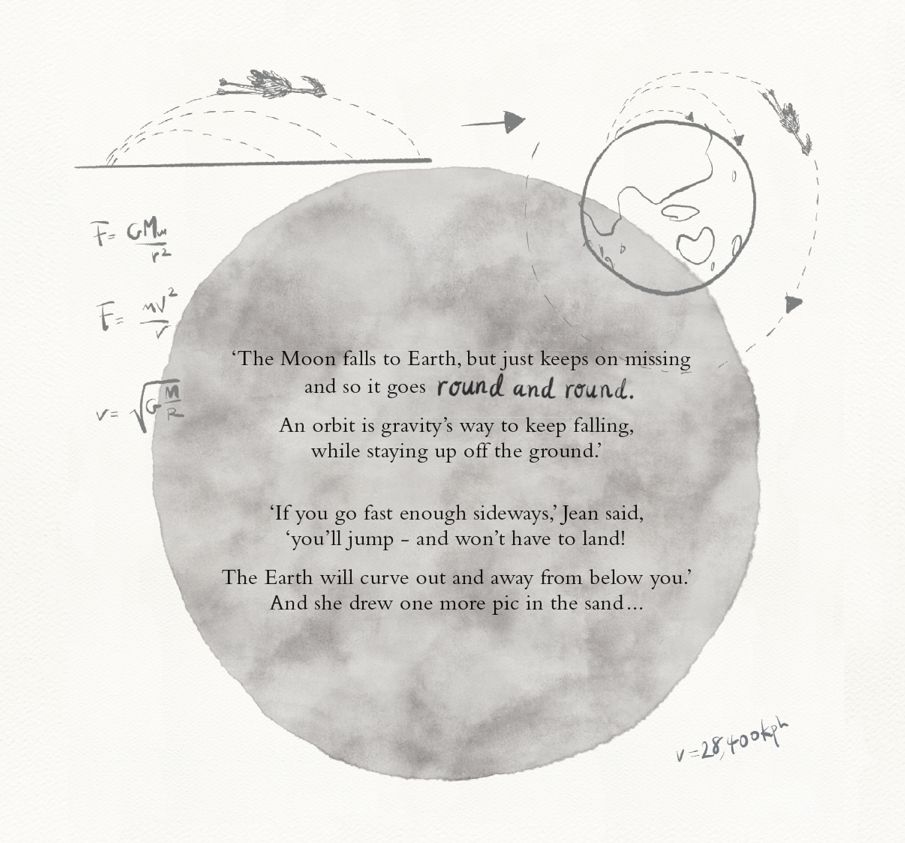 F = GMm/r²
F = mv²/r
v = √(G M/R)
‘The Moon falls to Earth, but just keeps on missing
and so it goes round and round.
An orbit is gravity’s way to keep falling,
while staying up off the ground.’
‘If you go fast enough sideways,’ Jean said,
‘you’ll jump – and won’t have to land!
The Earth will curve out and away from below you.’
And she drew one more pic in the sand…
v=28,400kph